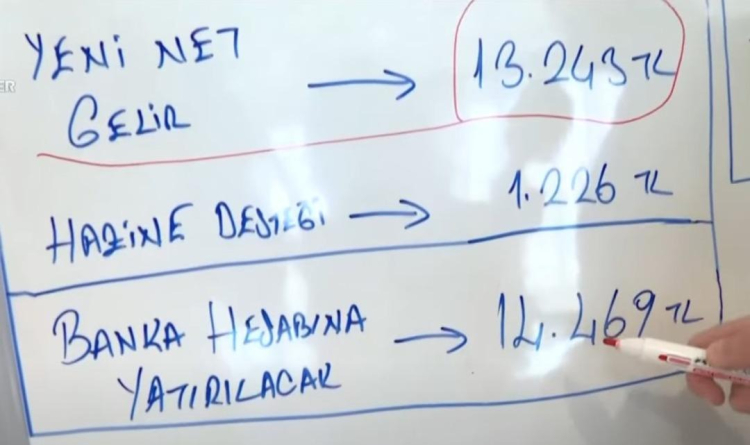 YENİ NET
GELİR → 13.243 TL
HAZİNE DESTEĞİ → 1.226 TL
BANKA HESABINA
YATIRILACAK → 14.469 TL
ER